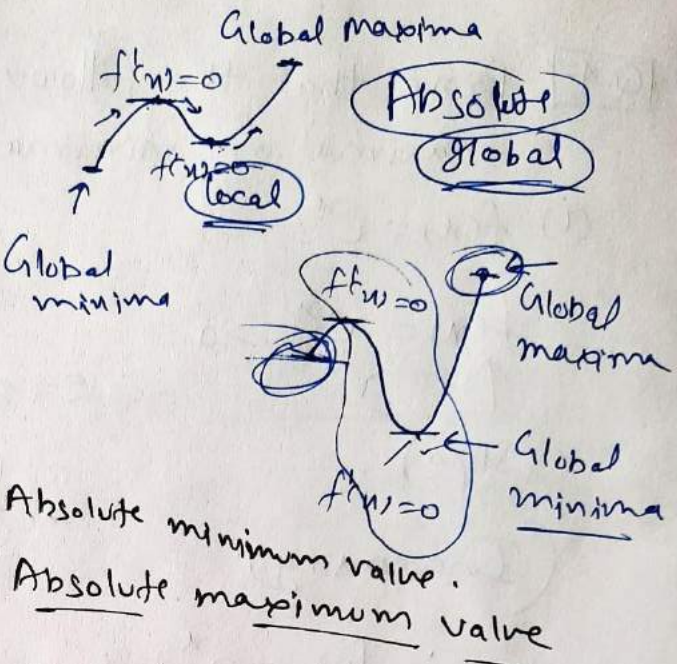 Global maxima
f'(x)=0
Absolute
global
f'(x)=0
local
Global
minima
f'(x)=0
Global
maxima
Global
minima
f'(x)=0
Absolute minimum value.
Absolute maximum value